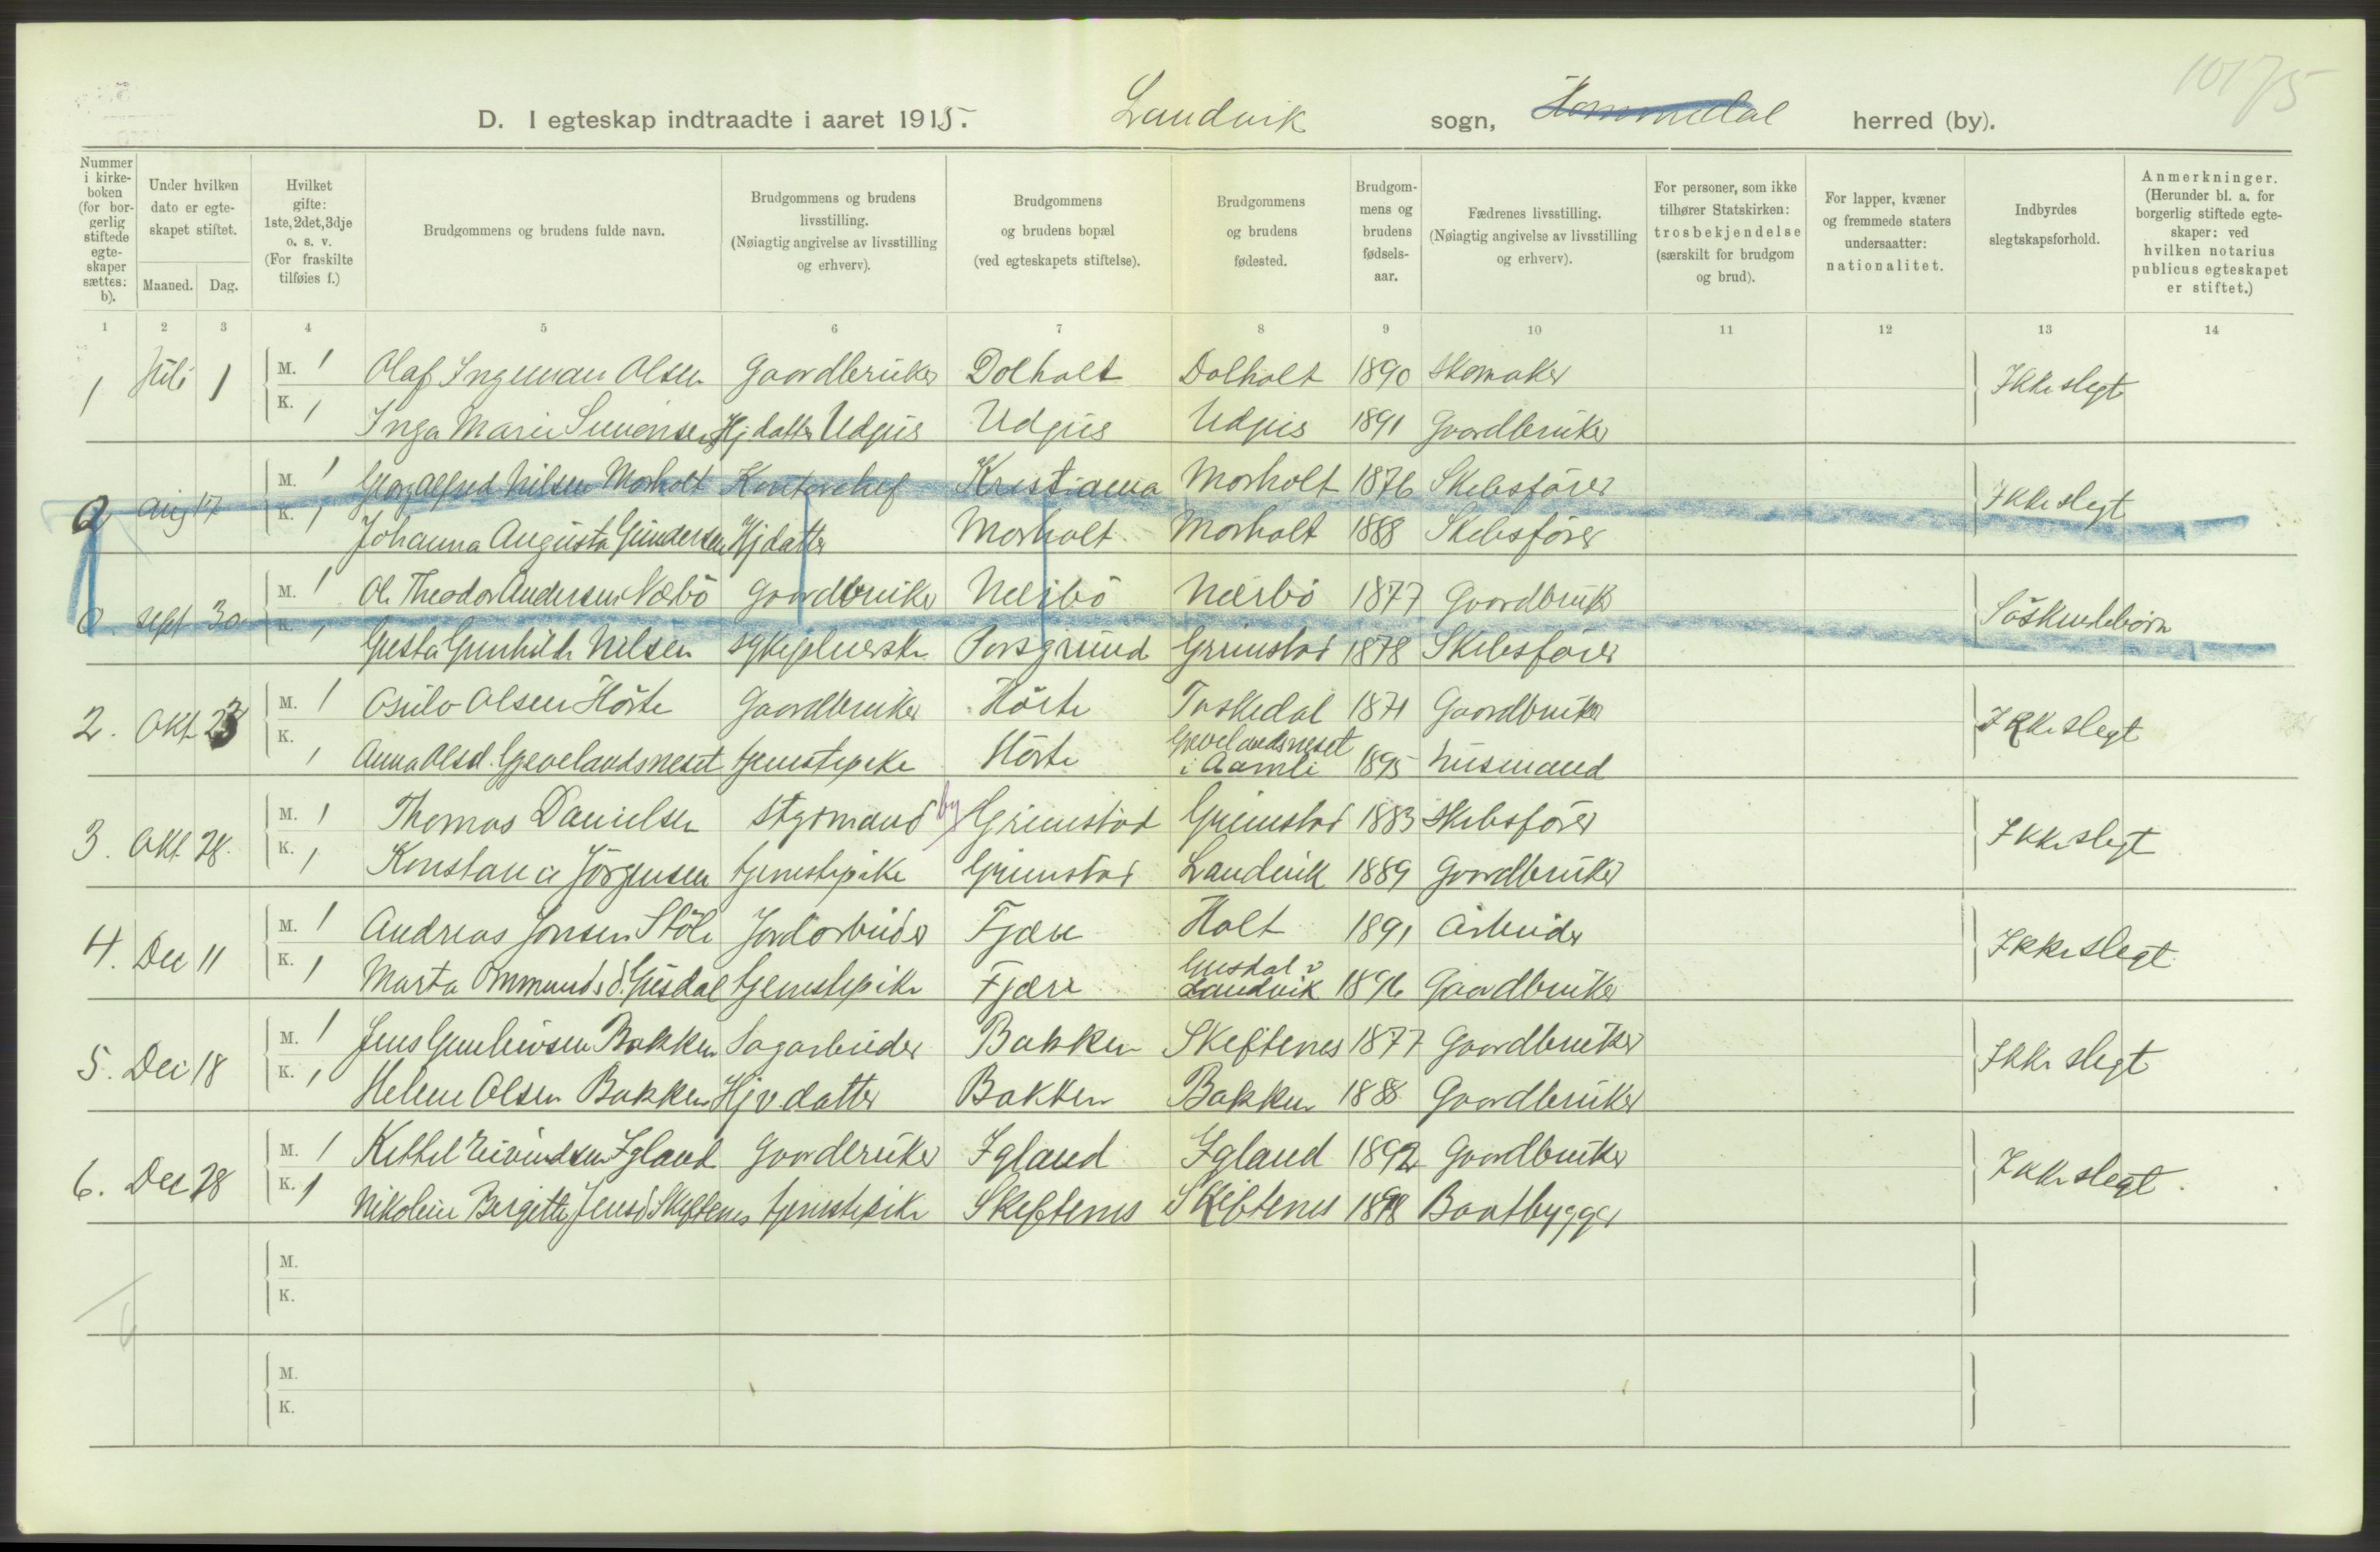 10175
D. I egteskap indtraadte i aaret 1915. Landvik sogn, Hommedal herred (by).
Nummer i kirke-boken (for bor-gerlig stiftede egte-skaper sættes: b).
Under hvilken dato er egte-skapet stiftet.
Maaned. Dag.
Hvilket gifte: 1ste, 2det, 3dje o. s. v. (For fraskilte tilføies f.)
Brudgommens og brudens fulde navn.
Brudgommens og brudens livsstilling. (Nøiagtig angivelse av livsstilling og erhverv).
Brudgommens og brudens bopæl (ved egteskapets stiftelse).
Brudgommens og brudens fødested.
Brudgom-mens og brudens fødsels-aar.
Fædrenes livsstilling. (Nøiagtig angivelse av livsstilling og erhverv).
For personer, som ikke tilhører Statskirken: trosbekjendelse (særskilt for brudgom og brud).
For lapper, kvæner og fremmede staters undersaatter: nationalitet.
Indbyrdes slegtskapsforhold.
Anmerkninger. (Herunder bl. a. for borgerlig stiftede egte-skaper: ved hvilken notarius publicus egteskapet er stiftet.)
1 2 3 4 5 6 7 8 9 10 11 12 13 14
1 Juli 1 M. 1 Olaf Ingeman Olsen Gaardbruker Dolholt Dolholt 1890 Skomaker Ikke slegt
K. 1 Inga Marie Simonsen Hj datter Udjus Udjus 1891 Gaardbruker
Aug 17 M. 1 Georg Alfred Nilsen Morholt Kontorchef Kristiania Morholt 1876 Skibsfører Ikke slegt
K. 1 Johanna Augusta Gundersen Hj datter Morholt Morholt 1888 Skibsfører
Sept 30 M. 1 Ole Theodor Andersen Nærbö Gaardbruker Nærbö Nærbö 1877 Gaardbruk Söskendebörn
K. 1 Gusta Gunhilde Nilsen sykepleierske Porsgrund Grimstad 1878 Skibsfører
2. Okt 23 M. 1 Asulv Olsen Hörte Gaardbruker Hörte Taskedal 1871 Gaardbruker Ikke slegt
K. 1 Anna Olsd. Gjevelandsneset tjenestepike Hörte Gjevelandsneset i Aamli 1895 husmand
3. Okt 28. M. 1 Thomas Danielsen styrmand by Grimstad Grimstad 1883 Skibsfører Ikke slegt
K. 1 Konstance Jörgensen tjenestepike Grimstad Landvik 1889 Gaardbruker
4. Dec 11 M. 1 Andreas Jonsen Stöle Jordarbeider Fjære Holt 1891 Arbeider Ikke slegt
K. 1 Marta Ommunds d. Gusdal tjenestepike Fjære Gusdal i Landvik 1896 Gaardbruker
5. Dec 18 M. 1 Jens Gunleivsen Bakken Sagarbeider Bakken Skeftenes 1877 Gaardbruker Ikke slegt
K. 1 Helene Olsen Bakken Hjv. datter Bakken Bakken 1888 Gaardbruker
6. Dec 28 M. 1 Kettel Eivindsen Igland Gaardbruker Igland Igland 1892 Gaardbruker Ikke slegt
K. 1 Nikoline Bergitte Jensd Skeftenes tjenestepike Skeftenes Skeftenes 1898 Baatbygger
M.
K.
6
M.
K.